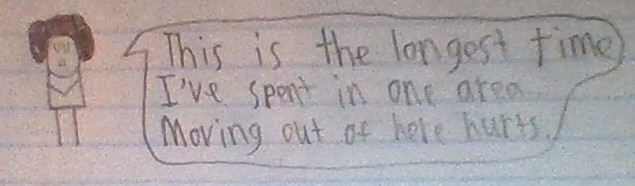 This is the longest time
I've spent in one area.
Moving out of here hurts.